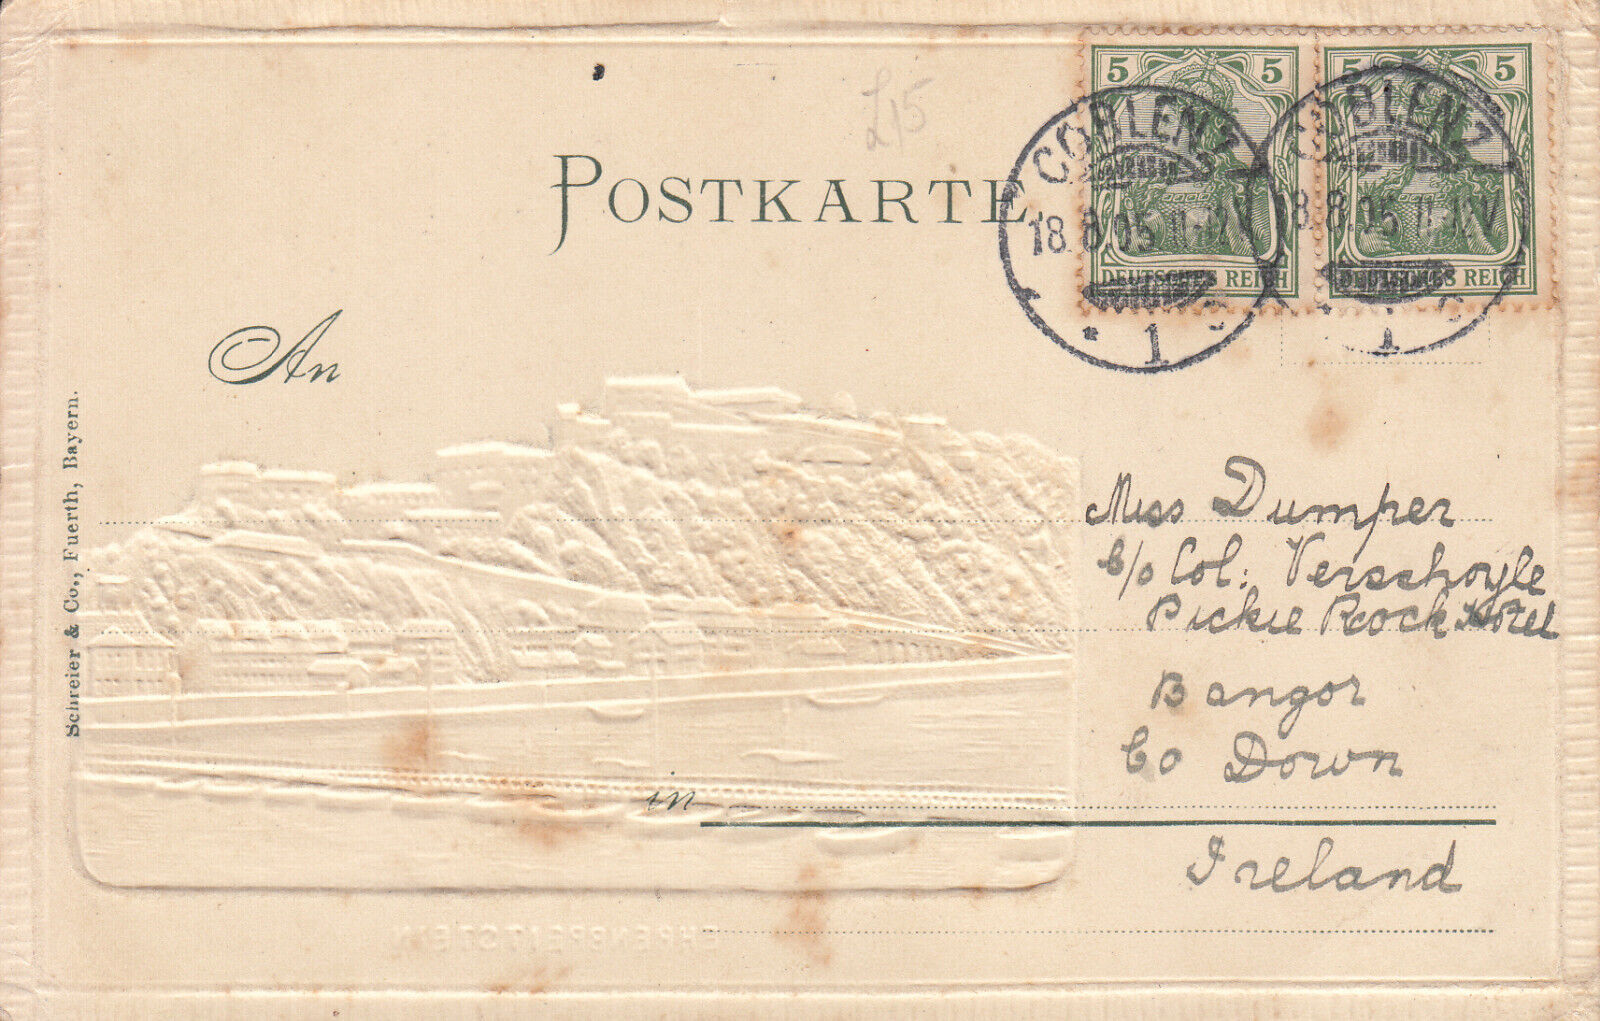 £15
5 5
DEUTSCHES REICH
5 5
DEUTSCHES REICH
COBLENZ
18.8.05 11-12V
* 1 c
COBLENZ
18.8.05 11-12V
* 1 c
POSTKARTE.
An
Miss Dumper
C/o Col: Verschoyle
Pickie Rock Hotel
Bangor
Co Down
in
Ireland
EHRENBREITSTEIN
Schreier & Co., Fuerth, Bayern.